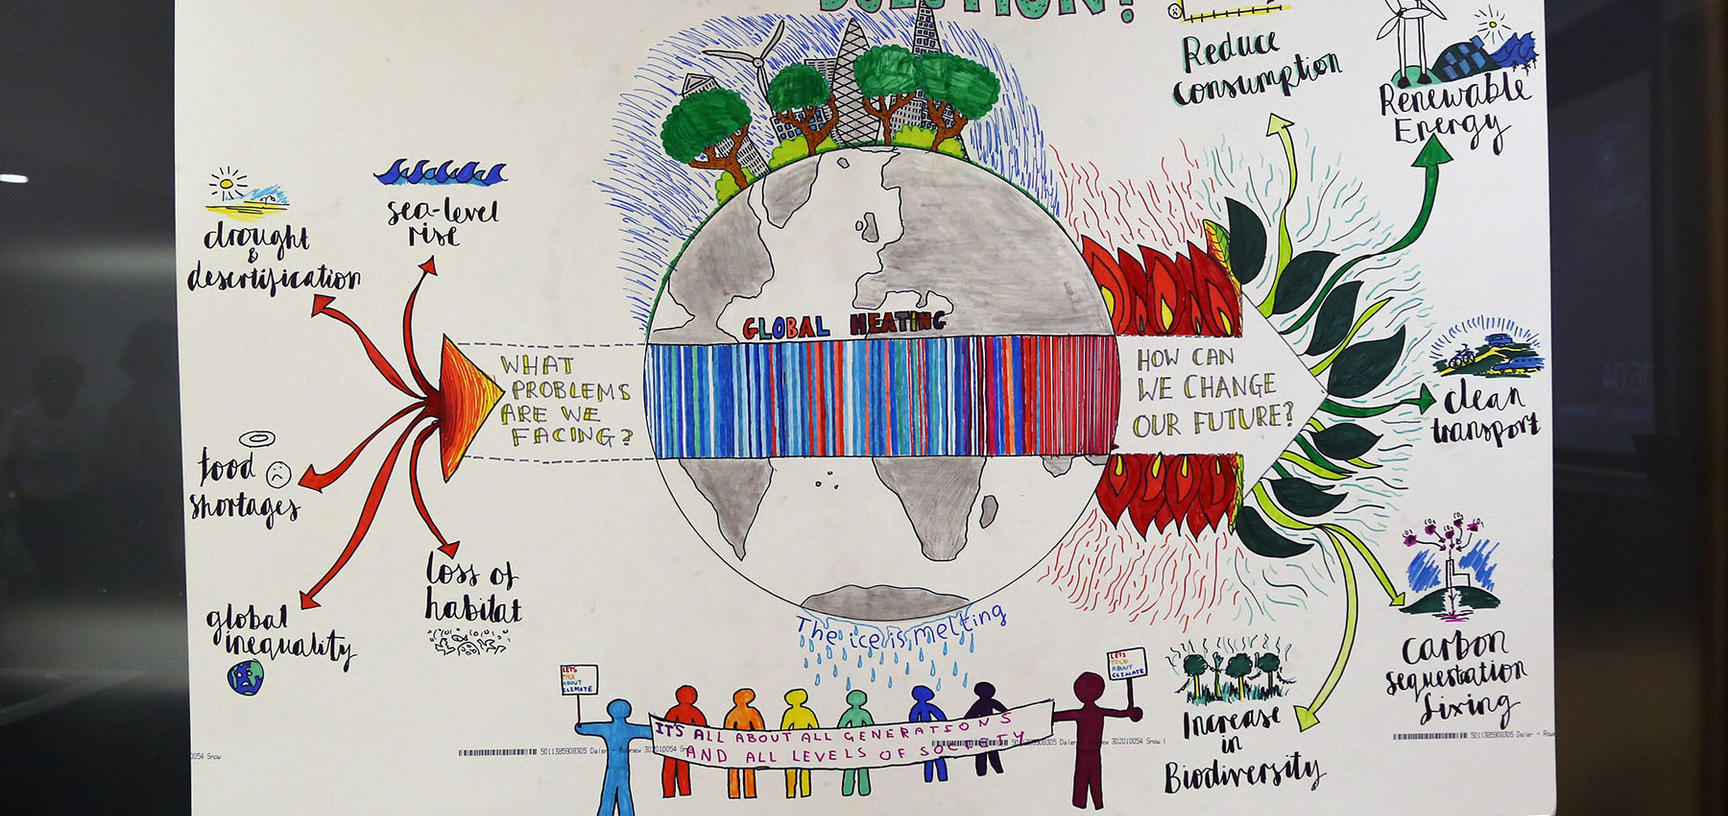 QUESTION?
Reduce
consumption
Renewable
Energy
drought
&
desertification
sea-level
rise
GLOBAL HEATING
WHAT
PROBLEMS
ARE WE
FACING?
HOW CAN
WE CHANGE
OUR FUTURE?
clean
transport
food
shortages
loss of
habitat
global
inequality
The ice is melting
CO₂ CO₂ CO₂ CO₂
carbon
sequestration
fixing
Increase
in
Biodiversity
LETS
TALK
ABOUT
CLIMATE
LETS
TALK
ABOUT
CLIMATE
IT'S ALL ABOUT ALL GENERATIONS
AND ALL LEVELS OF SOCIETY
0054 Snow
5011385908305 Daler - Rowney 302010054 Snow
5908305 Daler - Rowney 302010054 Snow
5011385908305 Daler - Rown